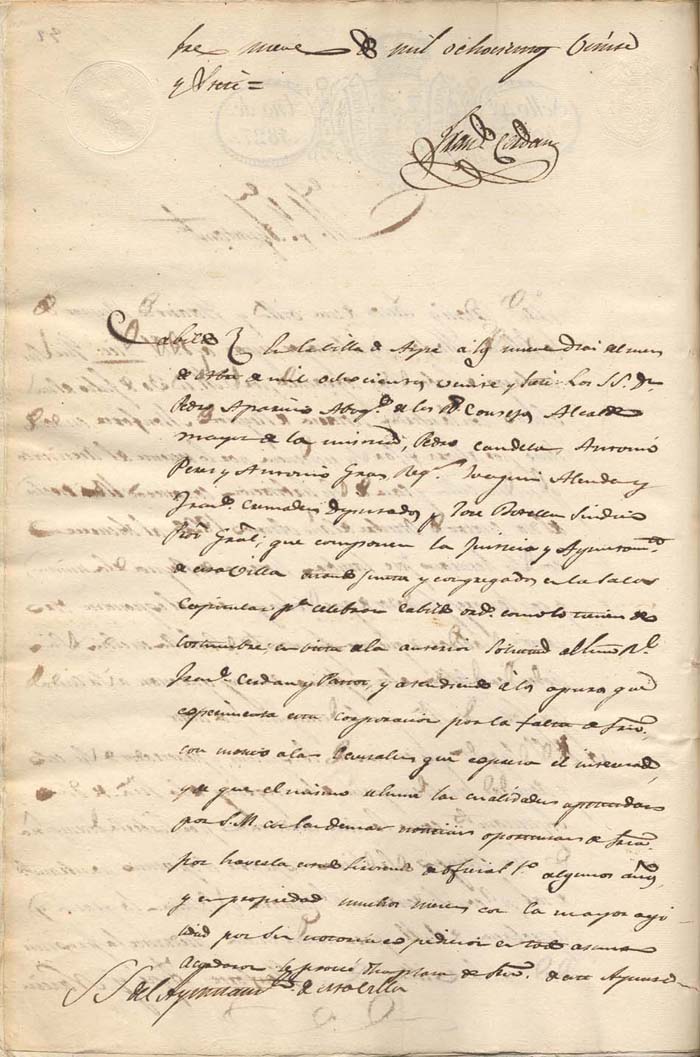 bre nueve de mil ochocientos veinte
y siete =
Franco Cerdan
Cabildo En la Villa de Aspe a los nueve dias del mes
de Obre de mil ochocientos veinte y siete: Los SS. Dn
Pedro Aparicio Abogo de los Rs Consejos Alcalde
mayor de la misma, Pedro Candela, Antonio
Peres y Antonio Gras Regs Joaquin Alenda y
Franco Cremades Diputados y Jose Botella Sindico
Pror Gral; que componen la Justicia y Ayuntamto
de esta Villa estando juntos y congregados en la Sala
Capitular pa celebrar cabildo ordo como lo tienen de
costumbre; en vista de la anterior solicitud del
Franco Cerdan y Pastor, y atendiendo a los apuros que
experimenta esta corporacion por la falta de Srio
con motivo a las causales que expresa el interesado,
y a que el mismo reune las cualidades apetecidas
por S.M. en las demas noticias oportunas de Sria
por haverla estado sirviendo de oficial 1o algunos años,
y en propiedad muchos meses con la mayor agi
lidad por ser notoria su pedicion en todo asunto
Acordaron de Srio de este Ayunto
SS. del Ayuntamto de esta Villa